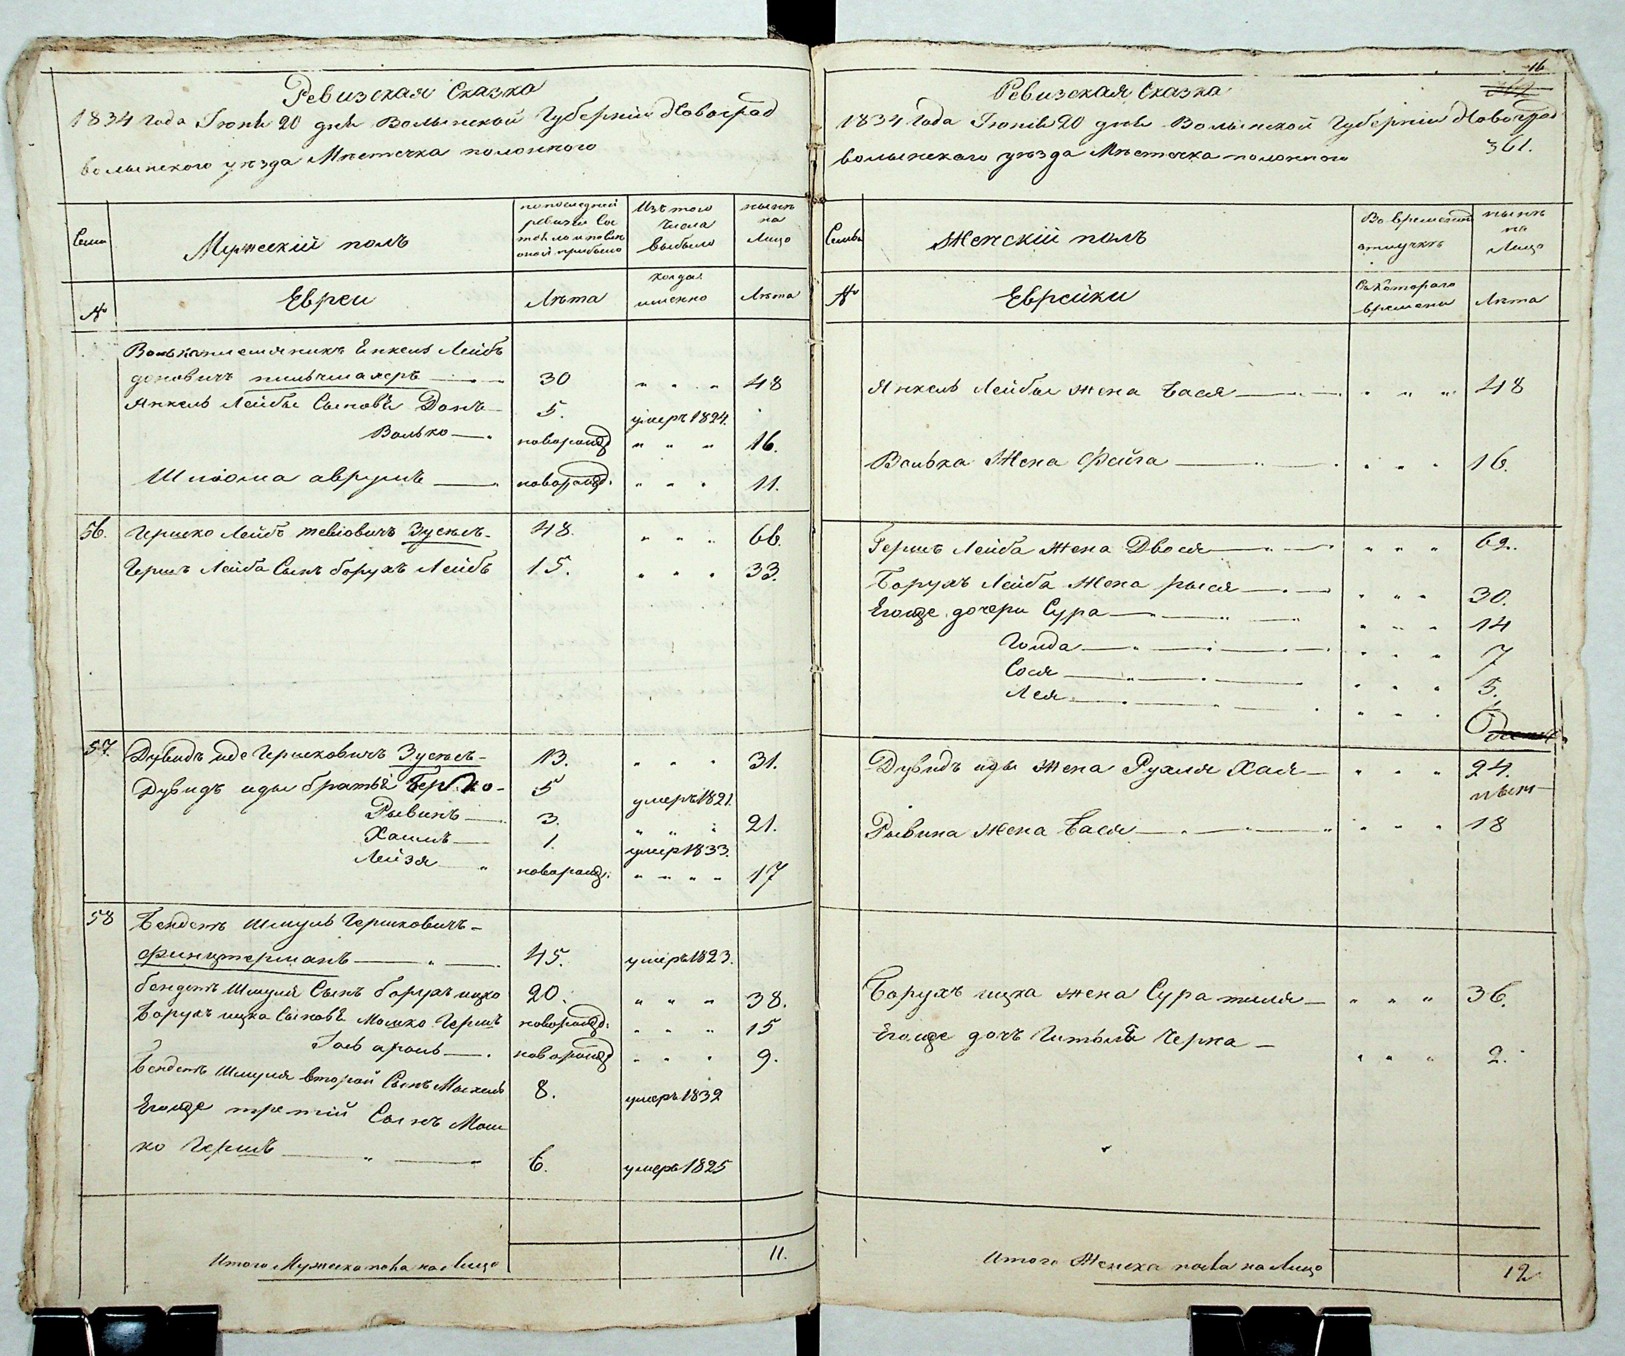 Ревизская Сказка
1834 года Іюнѣ 20 дня Волынской Губерніи Новоград
волынского уѣзда Мѣстечка полонного
Семьи
Мужескій полъ
по последней
ревизіи Сос
тояло и после
оной прибыло
Изъ того
числа
выбыло
нынѣ
на
Лицо
№
Евреи
Лѣта
когда
именно
Лѣта
Волька племяникъ Енкель Лейбъ
доновичъ 30 " " " 48
Янкель Лейбы Сыновья Донъ 5. умеръ 1824.
Волько новорожд " " " 16.
Шлиома аврумъ новорожд. " " " 11.
56. Гершко Лейбъ тевіовичъ Зусель 48. " " " 66.
Гершъ Лейба Сынъ борухъ Лейбъ 15. " " " 33.
57. Дувидъ иде Гершковичъ Зусель 13. " " " 31.
Дувидъ иды братья Берко 5 умеръ 1821.
Рывинъ 3. " " " 21.
Хаимъ 1. умер 1833.
Лейзя новорожд. " " " " 17
58 Бендетъ Шмуль Гершковичъ
45. умеръ 1823.
бендетъ Шмуля Сынъ борухъ ицко 20. " " " 38.
Борухъ ицка Сыновья Мошко Гершъ новорожд. " " " 15
ароль новорожд " " " 9.
Бендетъ Шмуля второй Сынъ 8. умеръ 1832
Егожде третій Сынъ Мош
ко Гершъ 6. умеръ 1825
Итого Мужеска пола на Лицо 11.
16
Ревизская Сказка
1834 года Іюнѣ 20 дня Волынской Губерніи Новоград
361.
волынского уѣзда Мѣстечка полонного
Семьи
Женскій полъ
Во временной
отлучкѣ
нынѣ
на
Лицо
№
Еврейки
Съ котораго
времени
Лѣта
Янкель Лейбы жена Бася " " " 48
Волька Жена Фейга " " " 16.
Гершъ Лейба жена Двося " " " 62.
Борухъ Лейба Жена рыся " " " 30.
Егожде дочери Сура " " " 14
Голда " " " 7
Сося " " " 5.
Лея " " "
Дувидъ иды жена Рухля Хая " " " 24.
Рывина жена Бася " " " 18
Борухъ ицка жена Сура " " " 36.
Егожде дочъ Черна " " " 2.
Итого Женска пола на Лицо 12